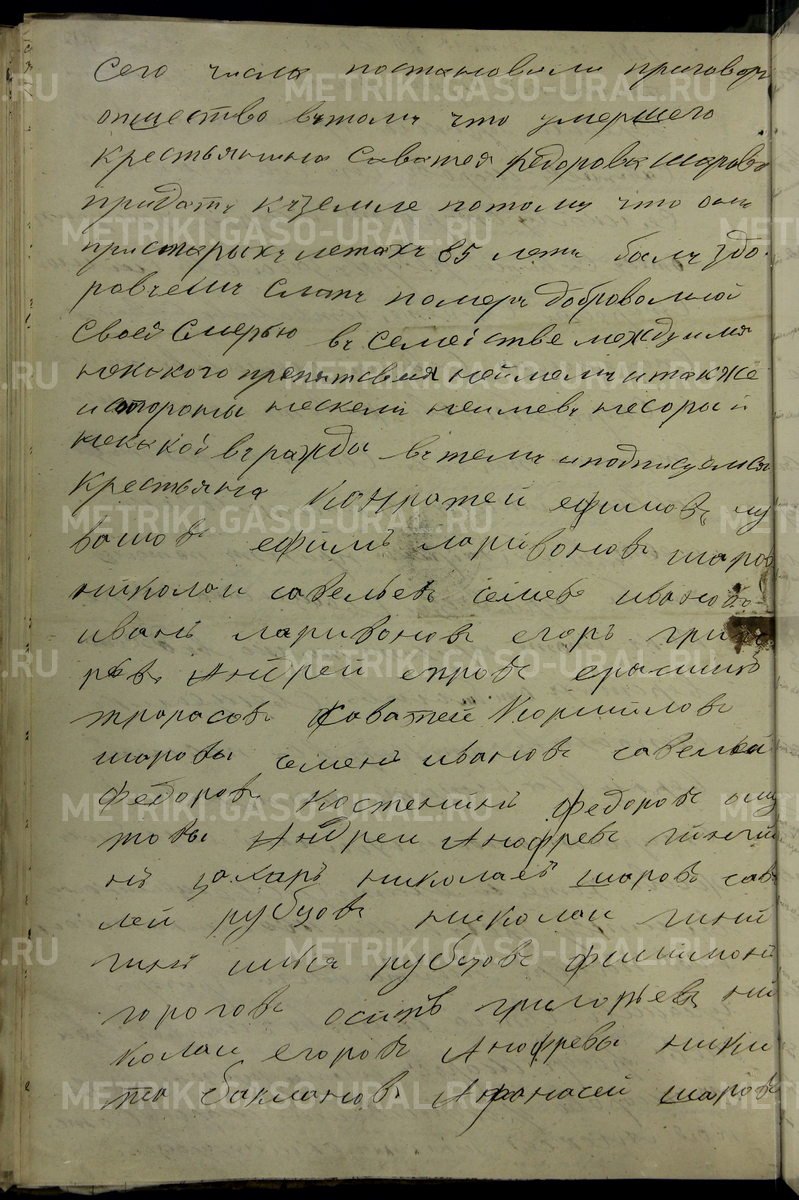 сего числа постановили приговоръ
опшество вътомъ что умершего
крестьянина Саватея федорова шарова
придать къземле потому что онъ
пристарыхъ летахъ 85 летъ балъ здо-
ровъемъ слапъ померъ добровольной
своей смертью въ семействе между имя
некакого препятсвия неимели итакже
нескеми неимевъ несоры и
некакой въражды въ темъ иподписуемся
крестьяна Конратей ефимовъ лу
вашовъ ефимъ ларивоновъ шаров
николаи савельевъ семенъ иваново
иванъ ларивоновъ егоръ григо
ревъ Андрей
Саватей Корниловъ
шаровы семенъ ивановъ савелей
Федоровъ костентинъ федоровъ
Андреи Ануфревъ
захаръ николаевъ шаровъ сав
лей рубцовъ николаи
илья рубцовъ филимонъ
осипъ григорьевъ ни
колаи егоровъ Ануфревы ники
та бакланов Афанасеи шаровъ
METRIKI.GASO-URAL.RU